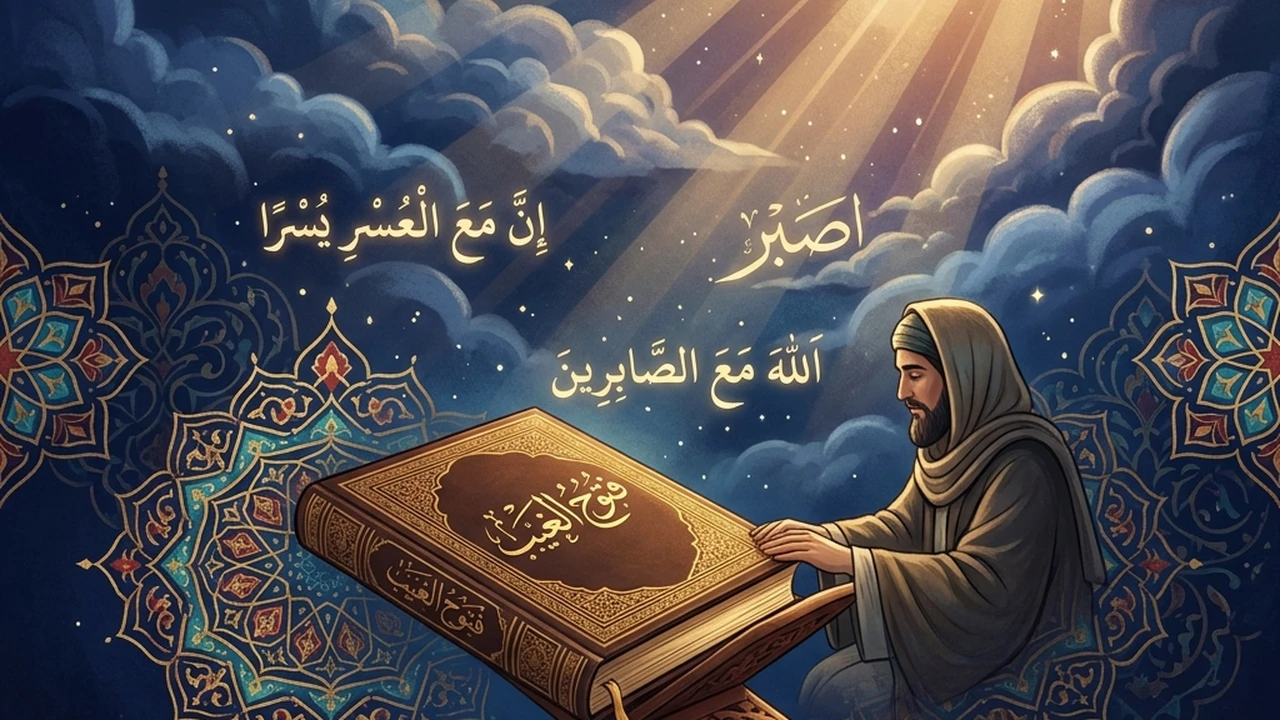 إِنَّ مَعَ الْعُسْرِ يُسْرًا
اصَبْرْ
اَللّٰهَ مَعَ الصَّابِرِينَ
فتوح الغيب
فتوح الغيب